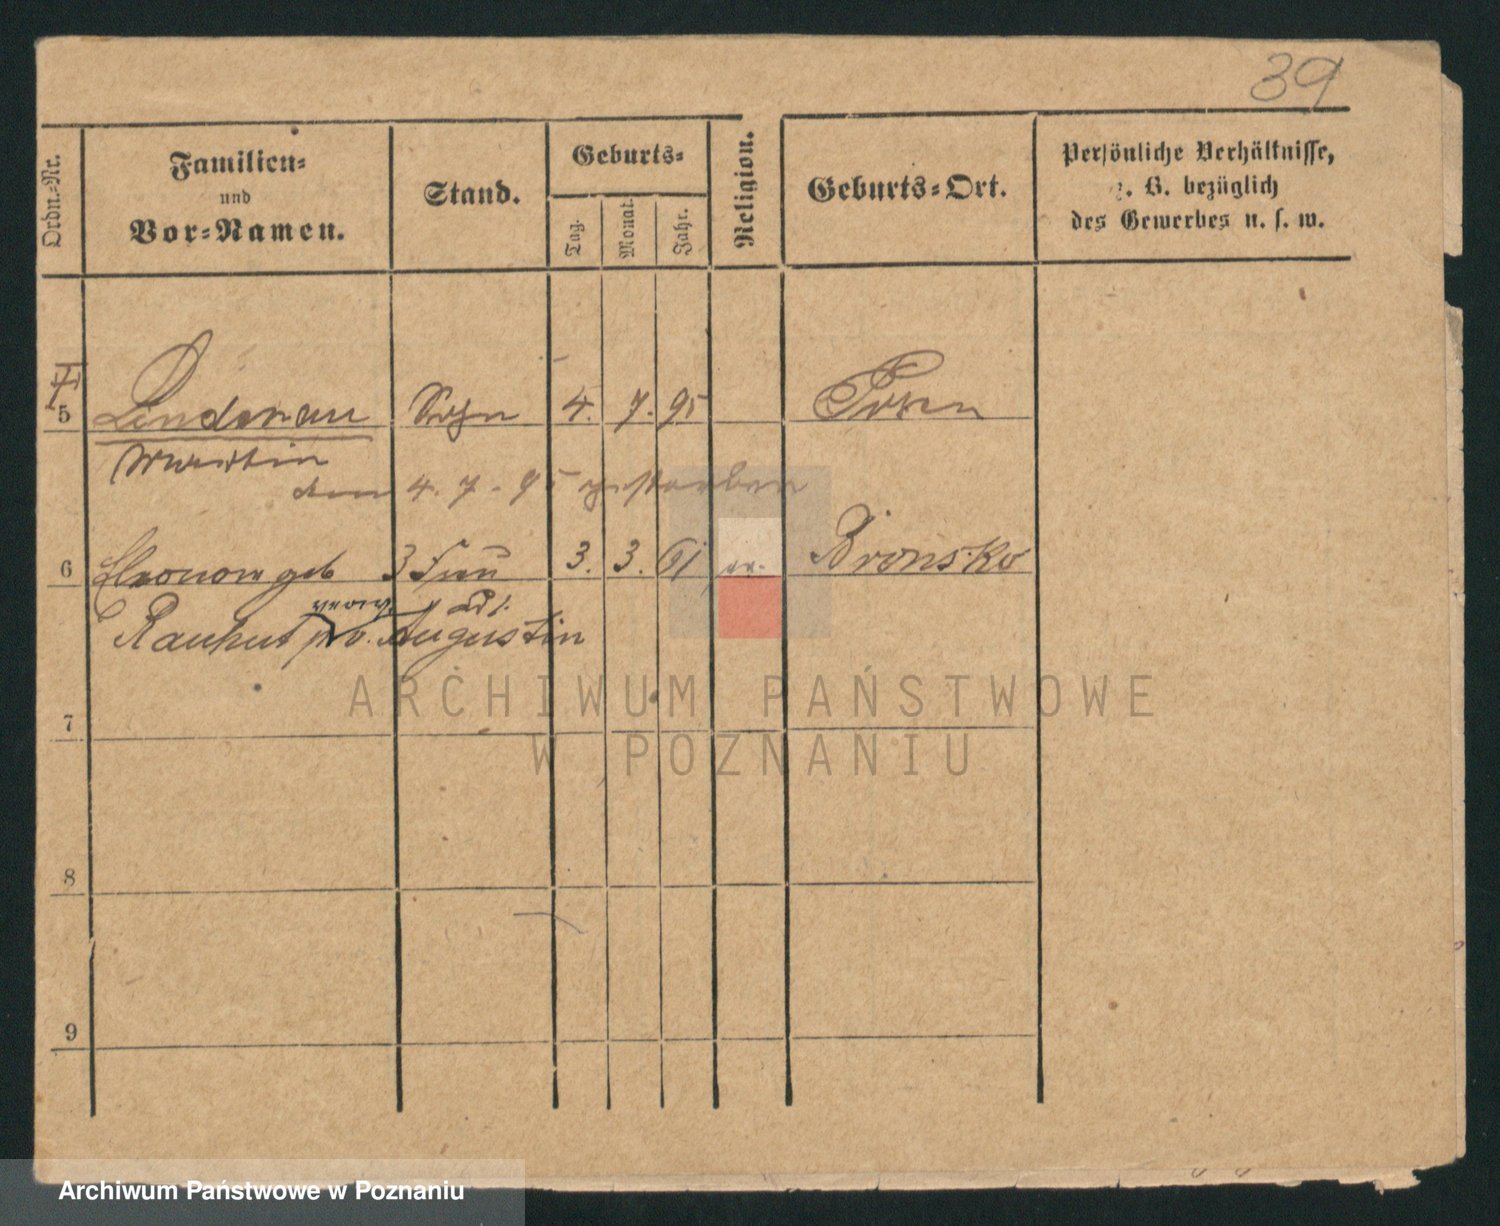 39
Ordn.-Nr.
Familien-
und
Vor-Namen.
Stand.
Geburts-
Tag.
Monat.
Jahr.
Religion.
Geburts-Ort.
Persönliche Verhältnisse,
z. B. bezüglich
des Gewerbes u. s. w.
5 Lindenau Sohn 4. 7. 95 Posen
Martin
den 4. 7. 95 gestorben
6 Eleonore geb 3 Frau 3. 3. 61 ev. Bronsko
verw.
Rauhut Augustin
7
8
9
ARCHIWUM PAŃSTWOWE
W POZNANIU
Archiwum Państwowe w Poznaniu